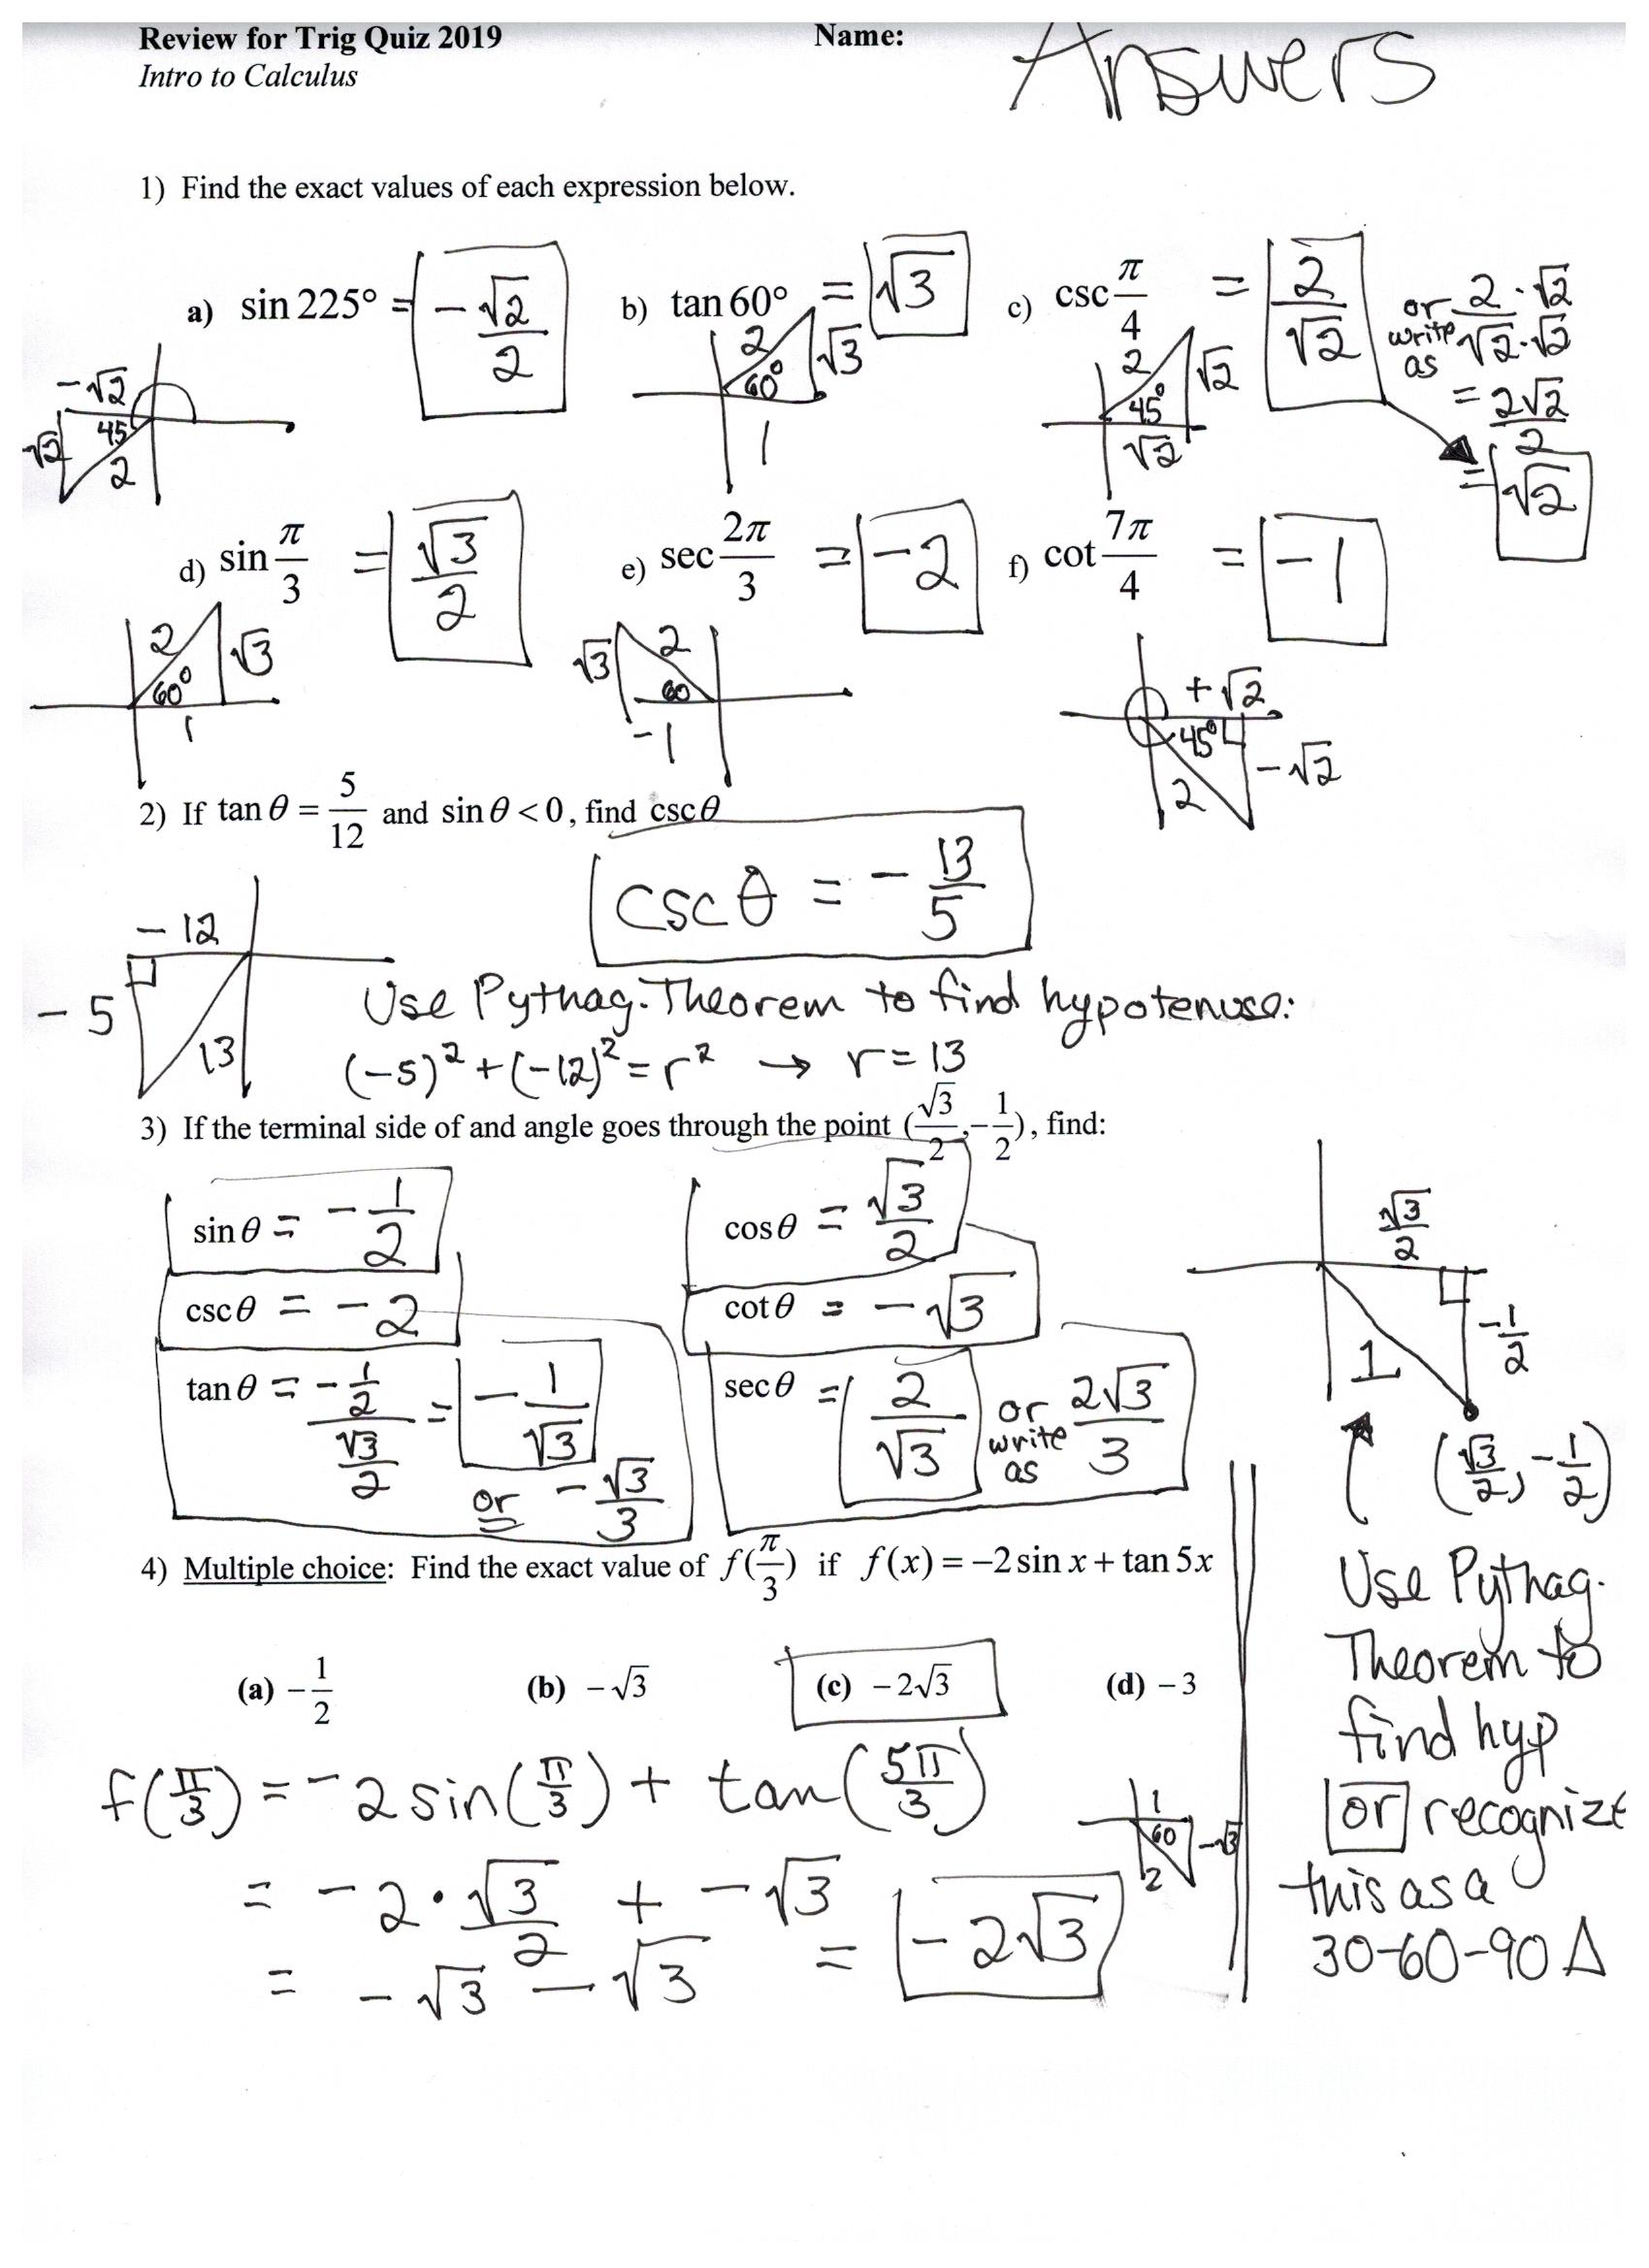 Review for Trig Quiz 2019 Name: Answers
Intro to Calculus
1) Find the exact values of each expression below.
a) sin 225° = -√2/2
b) tan 60° = √3
c) csc π/4 = 2/√2 or write as 2·√2/√2·√2 = 2√2/2 = √2
-√2 √2 45 2
2 60° √3 1
2 45° √2 √2
d) sin π/3 = √3/2
e) sec 2π/3 = -2
f) cot 7π/4 = -1
2 60° √3 1
√3 2 60 -1
+√2 45° -√2 2
2) If tan θ = 5/12 and sin θ < 0, find csc θ
csc θ = -13/5
-12 -5 13
Use Pythag. Theorem to find hypotenuse:
(-5)² + (-12)² = r² → r = 13
3) If the terminal side of and angle goes through the point (√3/2, -1/2), find:
sin θ = -1/2
cos θ = √3/2
csc θ = -2
cot θ = -√3
tan θ = -1/2/√3/2 = -1/√3 or -√3/3
sec θ = 2/√3 or write as 2√3/3
√3/2 -1/2 1
(√3/2, -1/2)
Use Pythag.
Theorem to
find hyp
or recognize
this as a
30-60-90 Δ
4) Multiple choice: Find the exact value of f(π/3) if f(x) = -2 sin x + tan 5x
(a) -1/2 (b) -√3 (c) -2√3 (d) -3
f(π/3) = -2 sin(π/3) + tan(5π/3)
1 60 -√3 2
= -2·√3/2 + -√3
= -√3 - √3 = -2√3